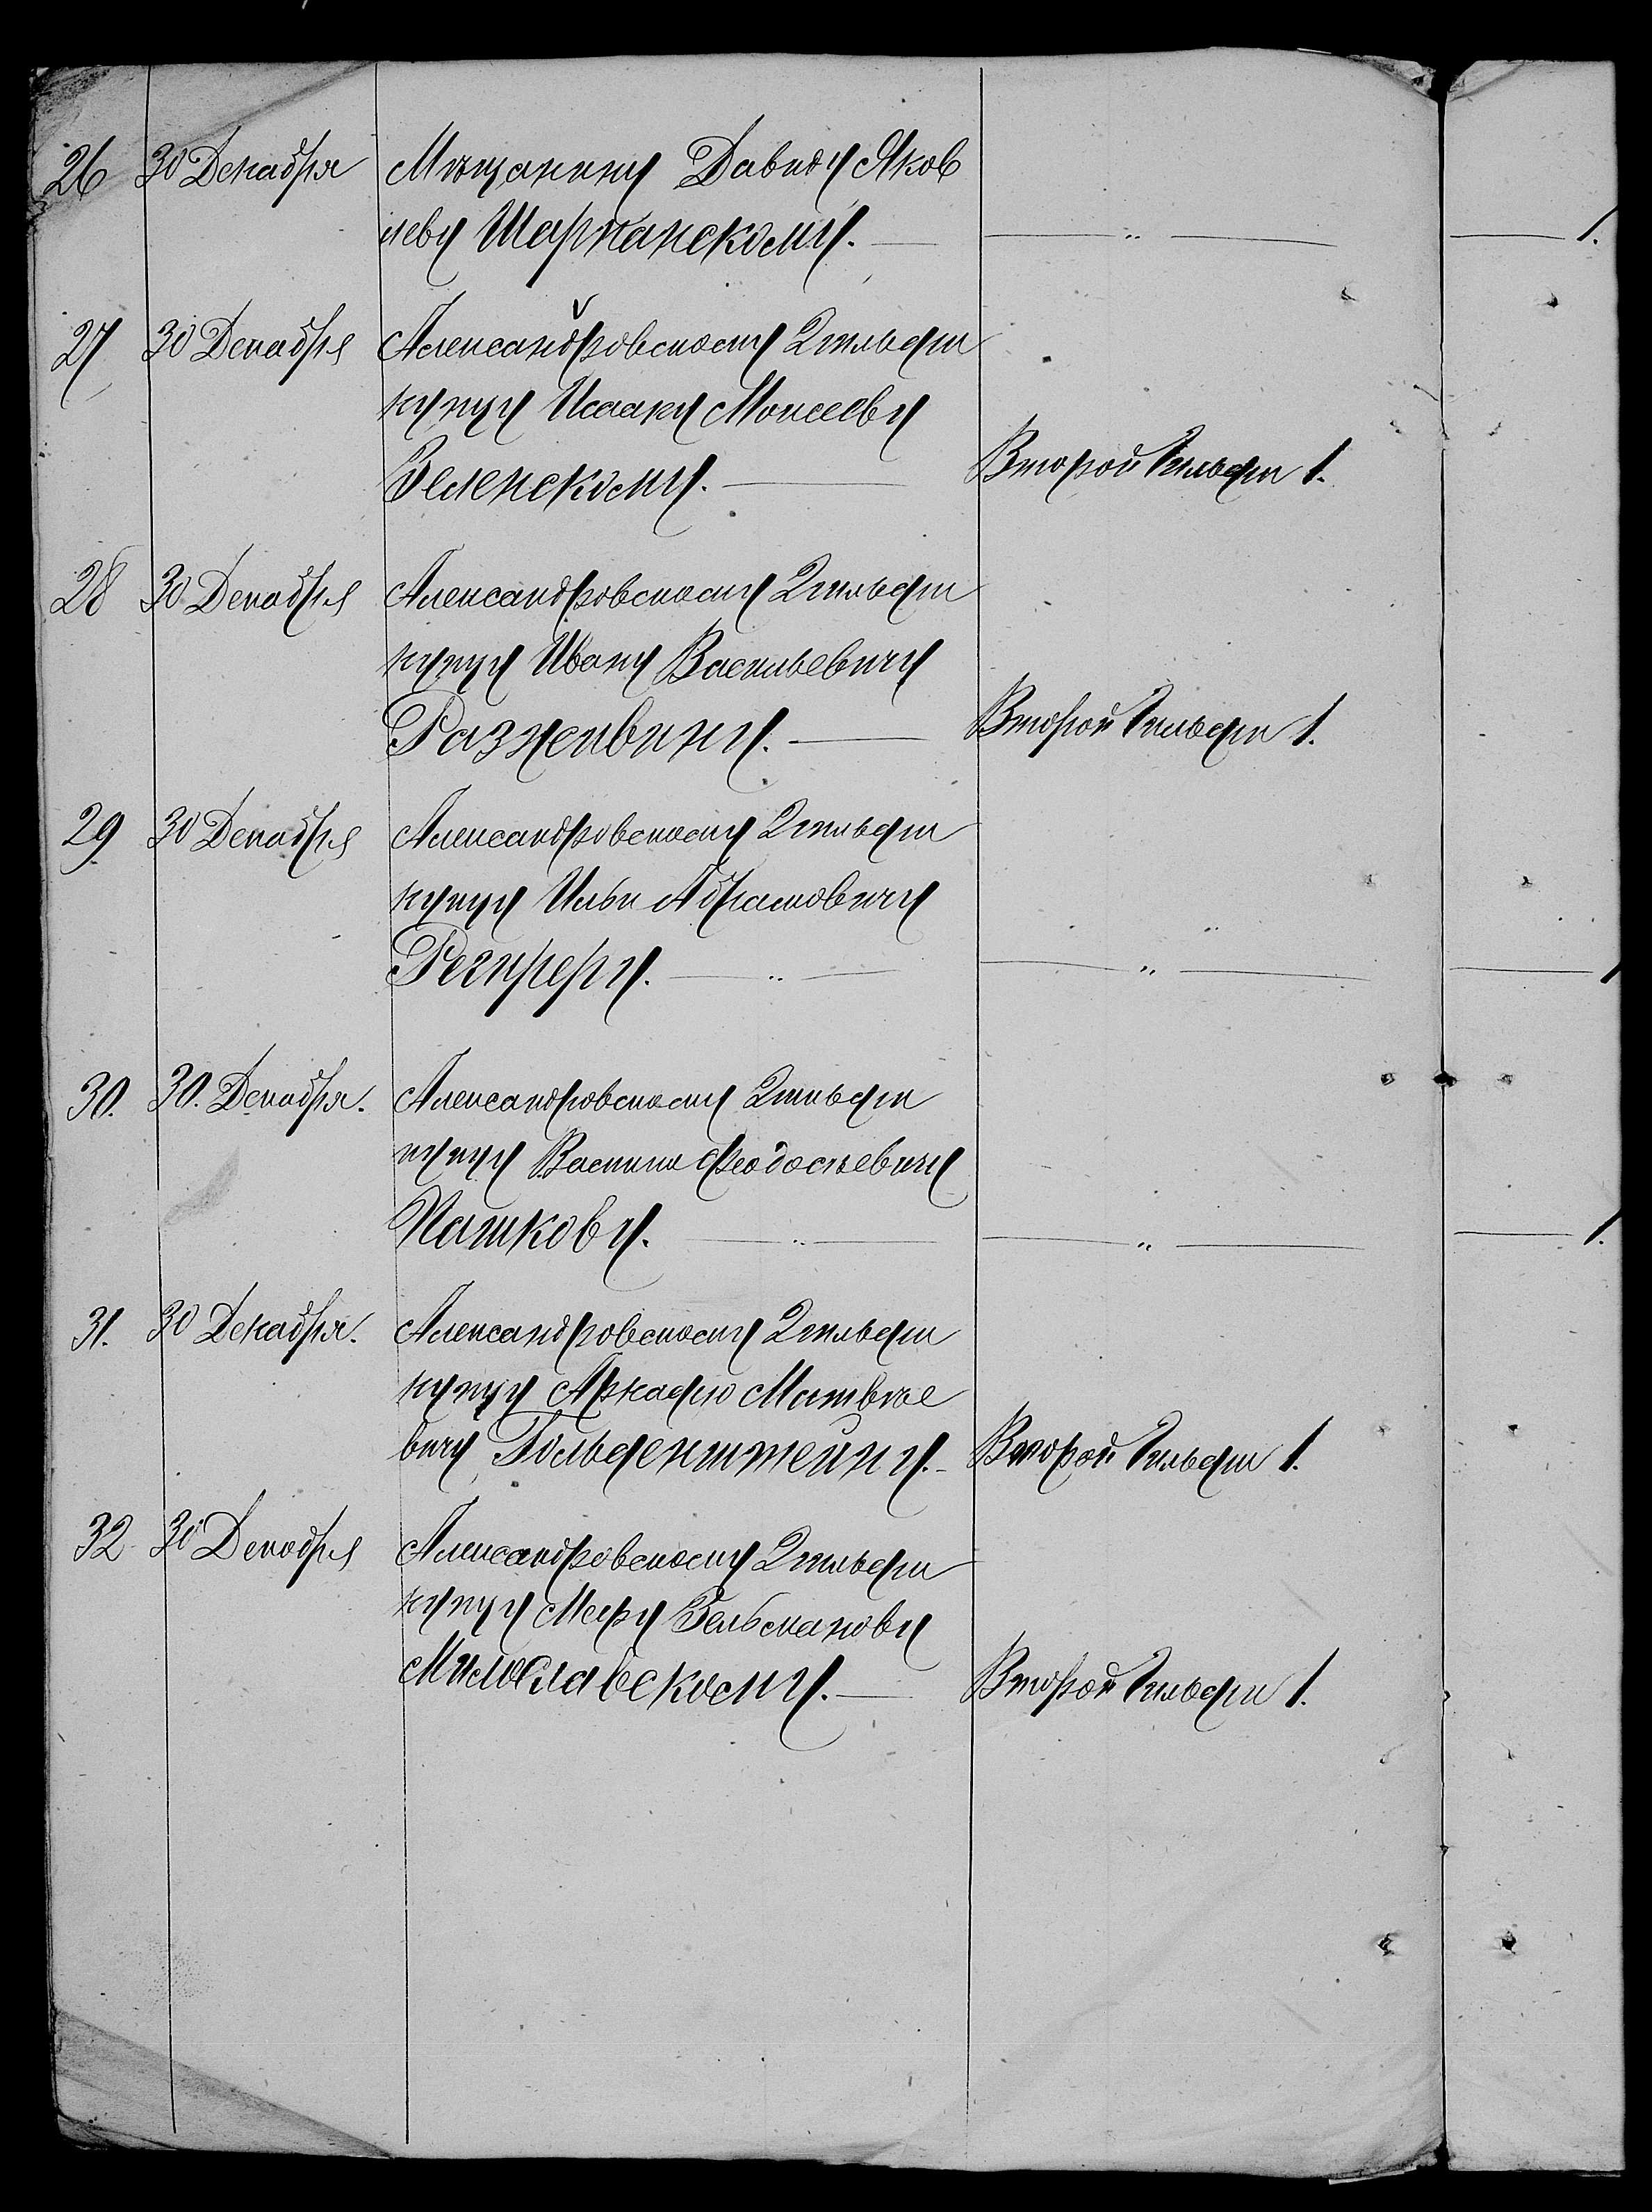 26 30 Декабря Мѣщанину Давиду Яков
леву Шарнанскому. — „ — 1.
27 30 Декабря Александровскому 2 гильдіи
купцу Исааку Моисееву
Зеленскому. — Второй Гильдіи 1.
28 30 Декабря Александровскому 2 гильдіи
купцу Ивану Васильевичу
— Второй Гильдіи 1.
29 30 Декабря Александровскому 2 гильдіи
купцу Ильи Абрамовичу
— „ — „ — 1
30. 30. Декабря. Александровскому 2 гильдіи
купцу Василію Феодосѣевичу
Пашкову. — „ — „ — 1.
31. 30 Декабря. Александровскому 2 гильдіи
купцу Аркадію Матвѣе
вичу Гольденштейну. Второй Гильдіи 1.
32 30 Декабря Александровскому 2 гильдіи
купцу Меру Зельманову
Милославскому. — Второй Гильдіи 1.